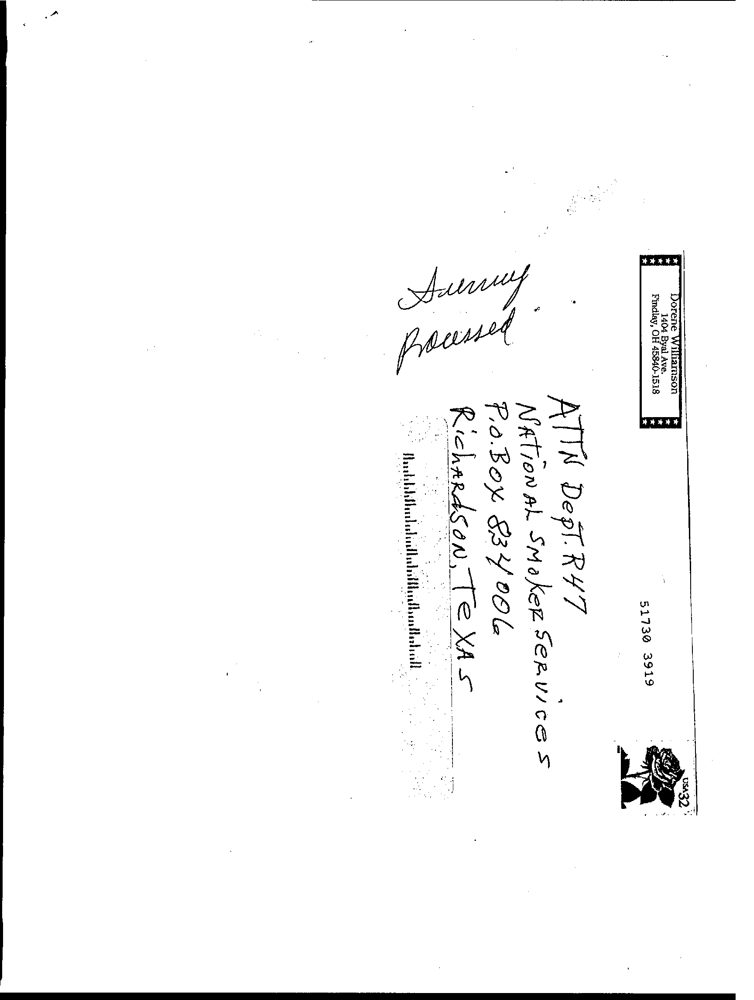 Dorene Williamson
1404 Byal Ave.
Findlay, OH 45840-1518
51730 3919
USA 32
ATTN Dept. R47
NATIONAL SMOKER SERVICES
P.O. BOX 834006
RicHARdSON, TeXAS
Survey
Processed